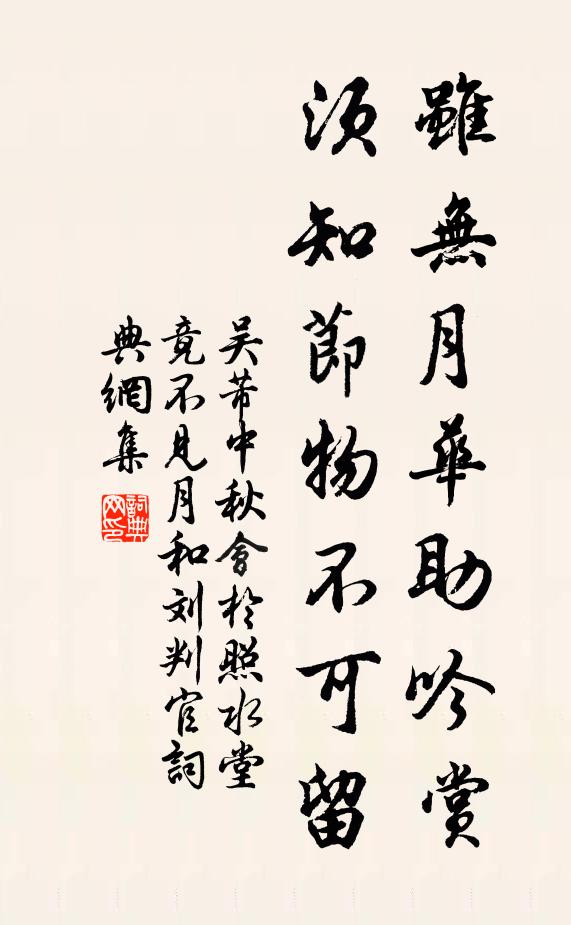 雖無月華助吟賞
須知節物不可留
吴芾中秋會於照水堂
竟不見月和刘判官詞
典網集
詞典
网印